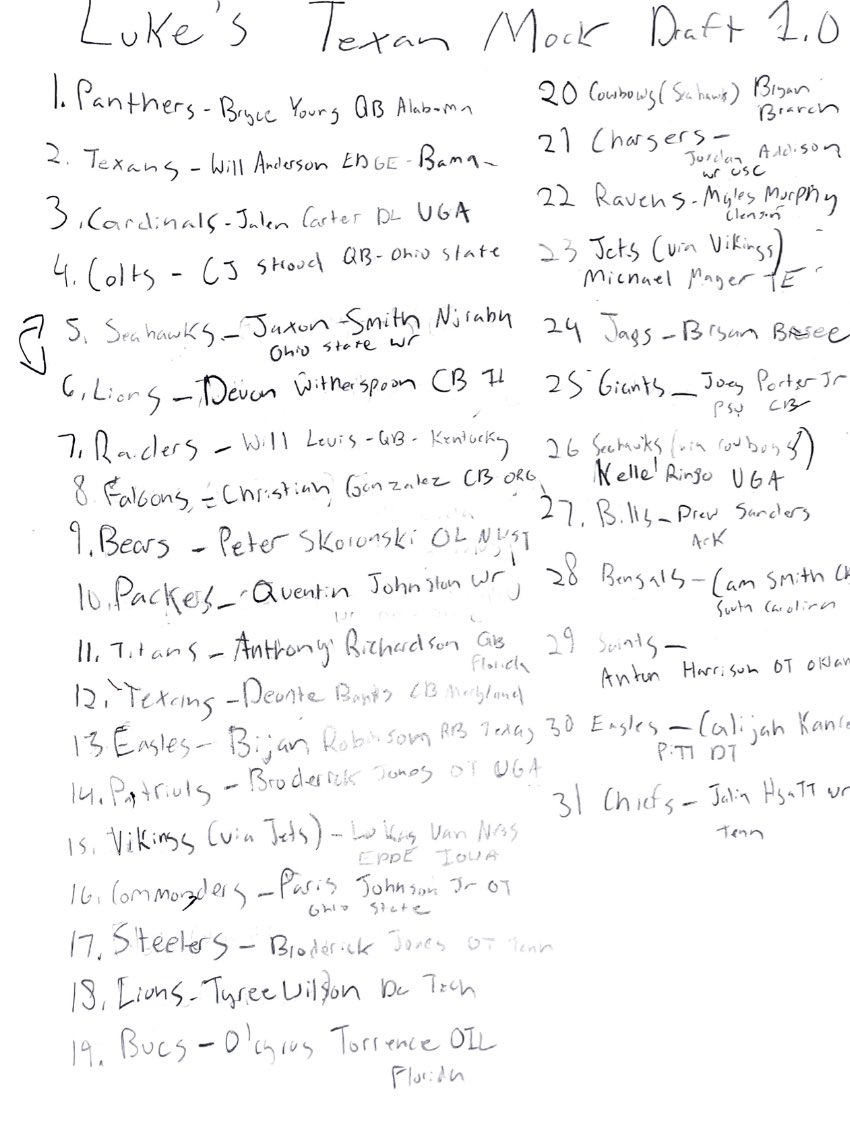 Luke's Texan Mock Draft 1.0
1. Panthers - Bryce Young QB Alabama
2. Texans - Will Anderson EDGE - Bama
3. Cardinals - Jalen Carter DL UGA
4. Colts - CJ Stroud QB - Ohio State
5. Seahawks - Jaxon - Smith Njigba
Ohio State wr
6. Lions - Devon Witherspoon CB Il
7. Raiders - Will Levis - QB - Kentucky
8. Falcons - Christian Gonzalez CB ORG
9. Bears - Peter Skoronski OL NWST
10. Packers - Quentin Johnston wr
11. Titans - Anthony Richardson QB
Florida
12. Texans - Deonte Banks CB Maryland
13 Eagles - Bijan Robinson RB Texas
14. Patriots - Broderick Jones OT UGA
15. Vikings (via Jets) - Lukas Van Ness
EDDE IOWA
16. Commanders - Paris Johnson Jr OT
Ohio State
17. Steelers - Broderick Jones OT Tenn
18. Lions - Tyree Wilson DL Tech
19. Bucs - O'cyrus Torrence OIL
Florida
20 Cowboys (Seahawks) Bryan
Branch
21 Chargers -
Jordan Addison
wr USC
22 Ravens - Myles Murphy
Clemson
23 Jets (via Vikings)
Michael Mayer TE
24 Jags - Brysan Bresee
25 Giants - Joey Porter Jr
PSU CB
26 Seahawks (via cowboys)
Kelle' Ringo UGA
27. Bills - Drew Sanders
Ark
28 Bengals - Cam Smith
South Carolina
29 Saints -
Anton Harrison OT
30 Eagles - Calijah
PITT DT
31 Chiefs - Jalin Hyatt wr
Tenn